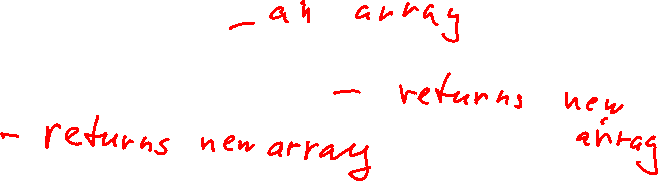 - an array
- returns new
array
- returns new array